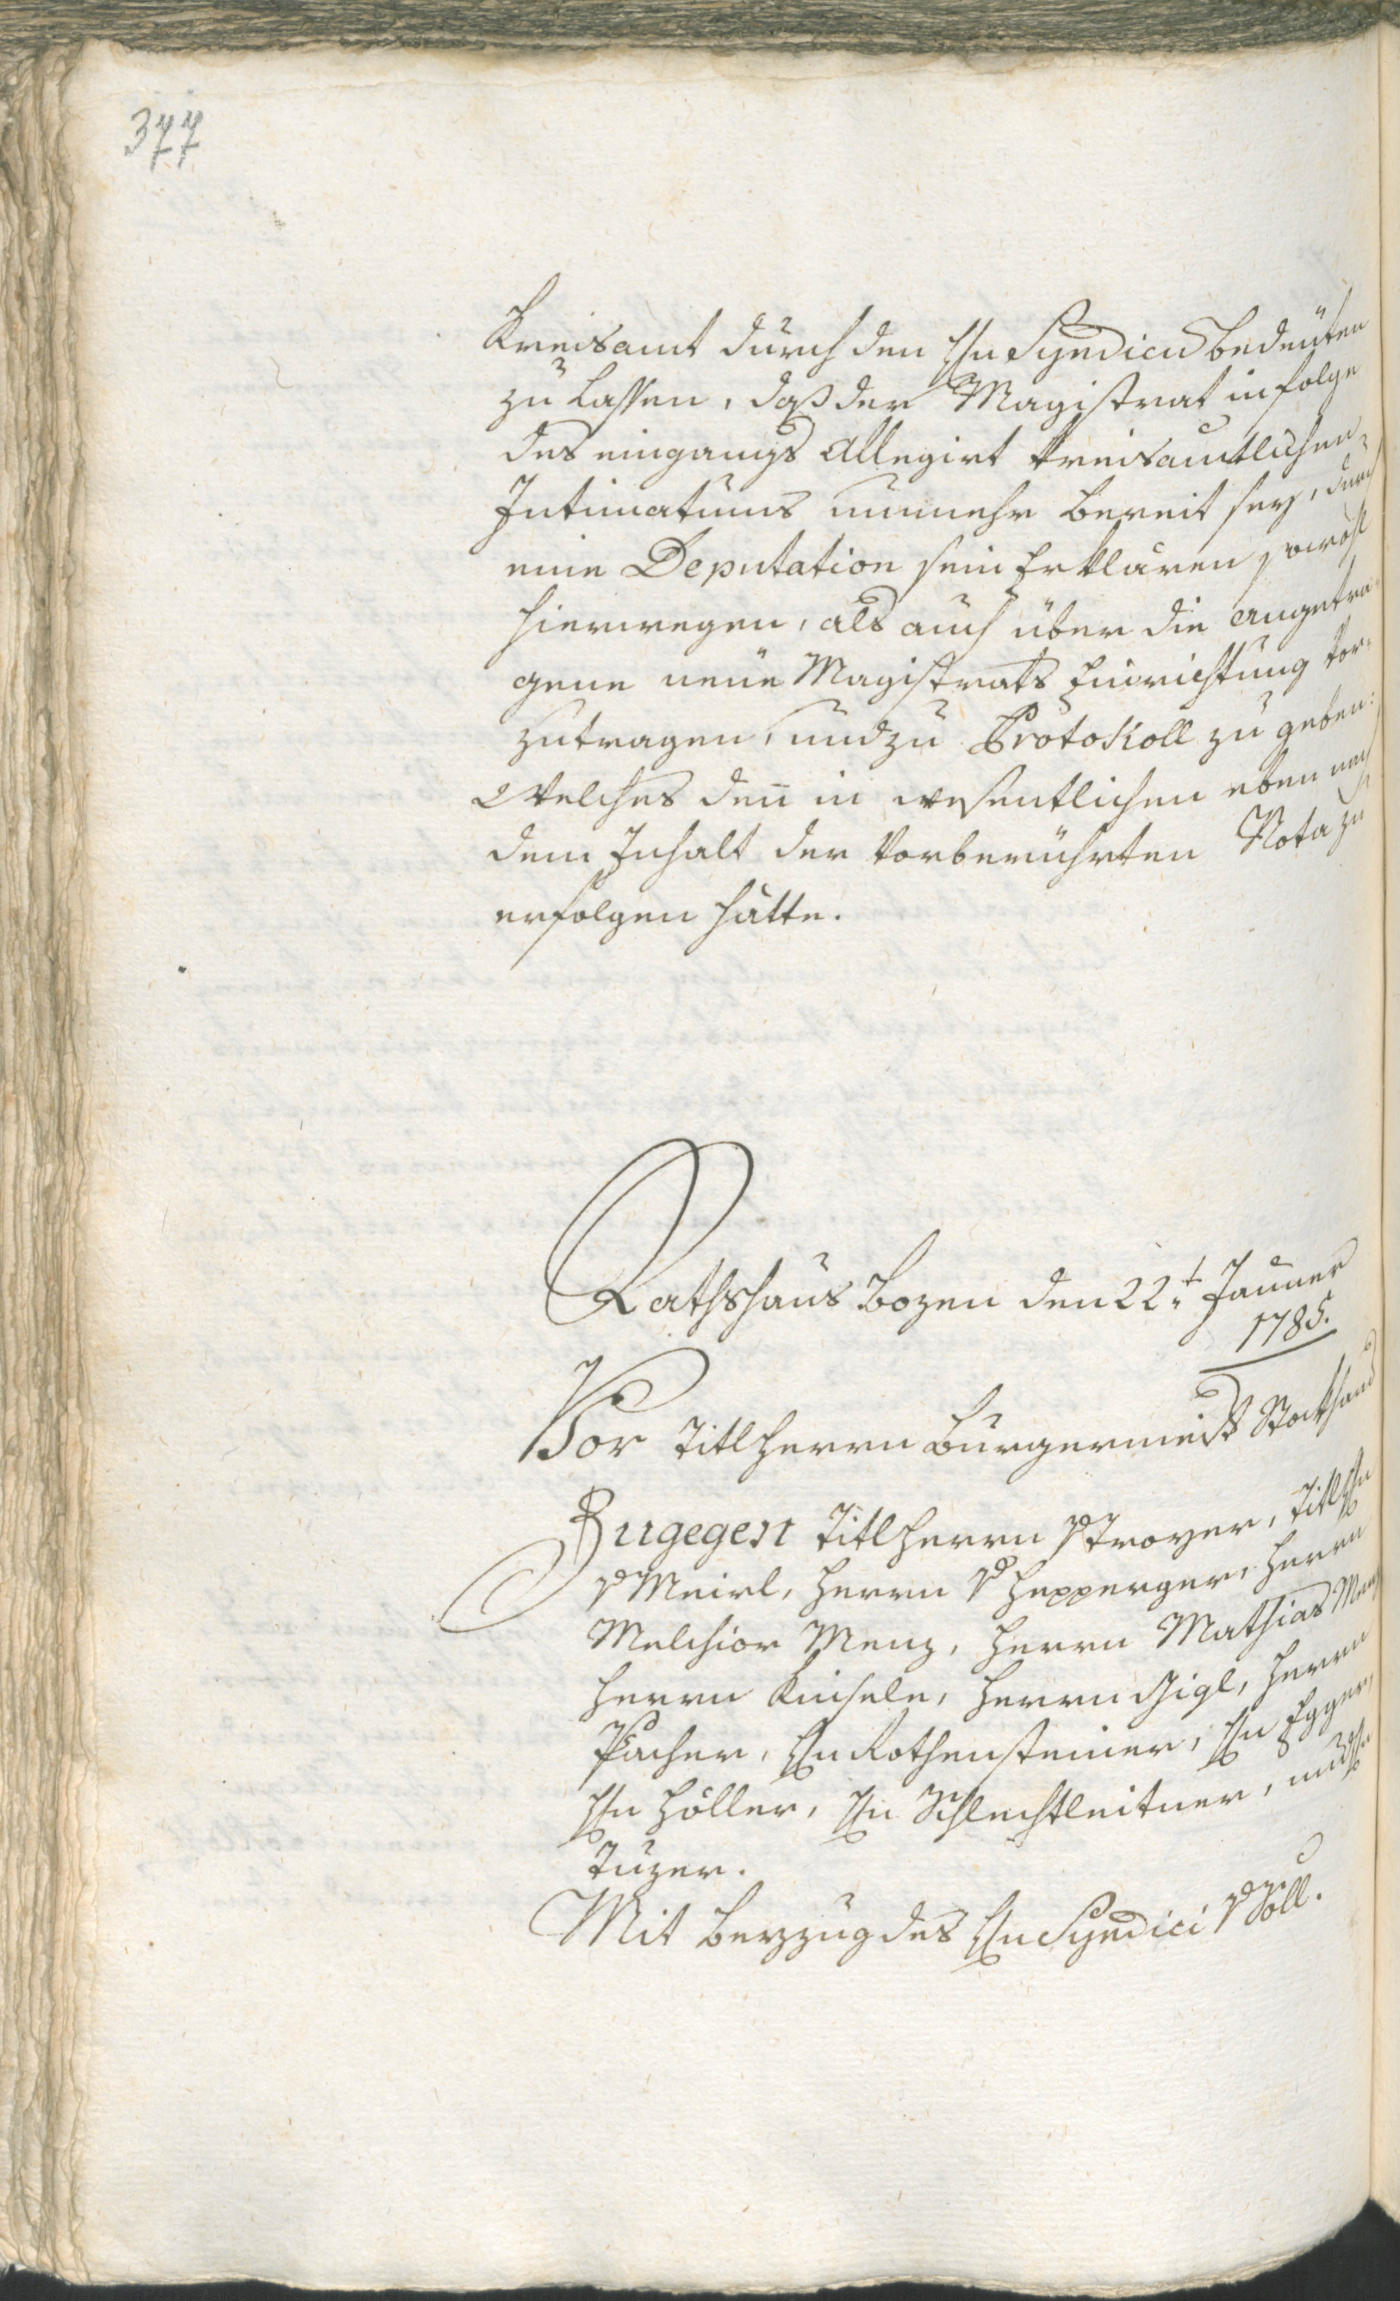 377
Kreisamt durch den Hn Syndicus bedeuten
zu lassen, daß der Magistrat infolge
des eingangs allegirt kreisamtlichen
Intimatums nunmehr bereit sey, durch
eine Deputation sein Erklären sowohl
hierwegen, als auch über die angetra-
gene neue Magistrats Einrichtung vor-
zutragen, und zu Protokoll zu geben:
Welches den̄ in wesentlichen eben nach
dem Inhalt der vorberührten Nota zu
erfolgen hätte.
Rathshaus Bozen den 22t Jänner
1785.
Vor Titl Herrn Bürgermeist Stockhaus
Zugegen Titl Herrn v Troyer, Titl Hn
v Meirl, Herrn v Hepperger, Herrn
Melchior Menz, Herrn Mathias Menz
Herrn Kinsele, Herrn Gigl, Herrn
Pacher, Hn Rothensteiner, Hn Egger,
Hn Höller, Hn Schlechtleitner, und Hn
Tuzer.
Mit Beyzug des Hn Syndici v Söll.